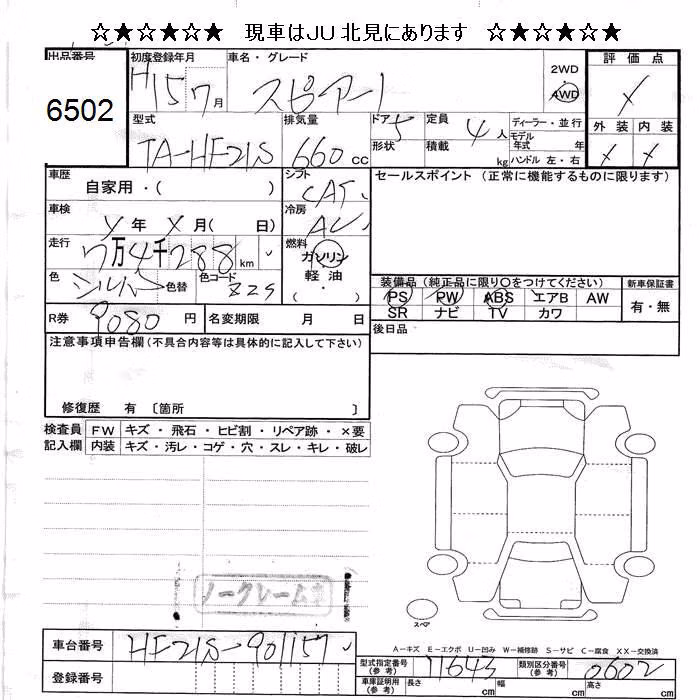 ☆★☆★☆★ 現車はJU北見にあります ☆★☆★☆★
出品番号 6502
初度登録年月 H15 7月
車名・グレード スピアーノ
2WD 4WD
評価点 X
外装 X 内装 X
型式 TA-HF21S
排気量 660 cc
ドア 5
形状
定員 4人
積載 kg
ディーラー・並行
モデル年式 年
ハンドル 左・右
車歴 自家用・( )
シフト CAT
セールスポイント (正常に機能するものに限ります)
車検 年 X月( 日)
冷房 AC
走行 7万4千288km
燃料 ガソリン 軽油 ( )
色 シルバー 色替 色コード Z2S
装備品 (純正品に限り○をつけてください)
PS PW ABS エアB AW
SR ナビ TV カワ
新車保証書 有・無
R券 9080円
名変期限 月 日
後日品
注意事項申告欄(不具合内容等は具体的に記入して下さい)
修復歴 有 〔箇所 〕
検査員記入欄
FW キズ・飛石・ヒビ割・リペア跡・×要
内装 キズ・汚レ・コゲ・穴・スレ・キレ・破レ
ノークレーム
スペア
A-キズ E-エクボ U-凹み W-補修跡 S-サビ C-腐食 XX-交換済
車台番号 HF21S-901157
登録番号
型式指定番号(参考) 11643 類別区分番号(参考) 0602
車庫証明用(参考) 長さ cm 幅 cm 高さ cm